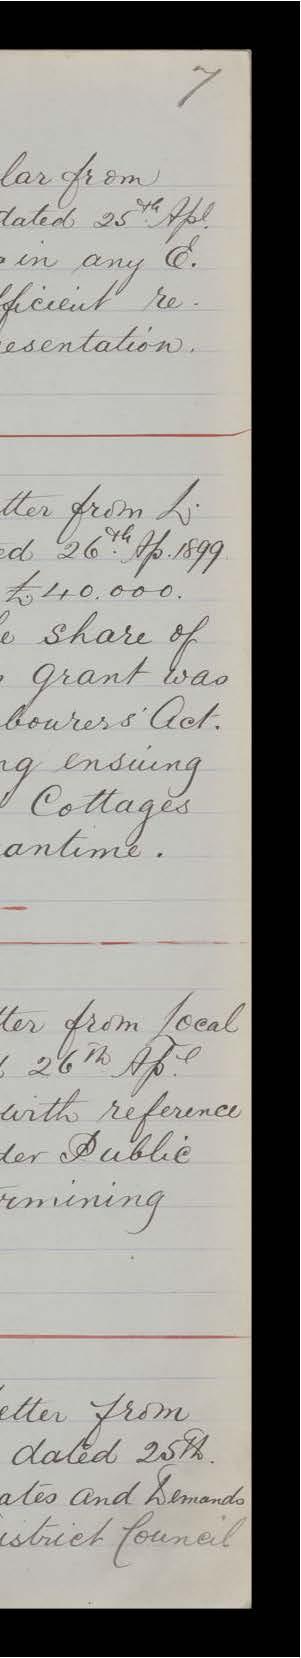 7
lar from
dated 25th Apl.
in any E.
fficient re-
esentation.
tter from L.
ed 26th Ap. 1899
£40.000.
e share of
grant was
bourers' Act.
ng ensuing
Cottages
antime.
tter from Local
26th Apl
with reference
der Public
rmining
etter from
dated 25th.
ates and Demands
istrict Council